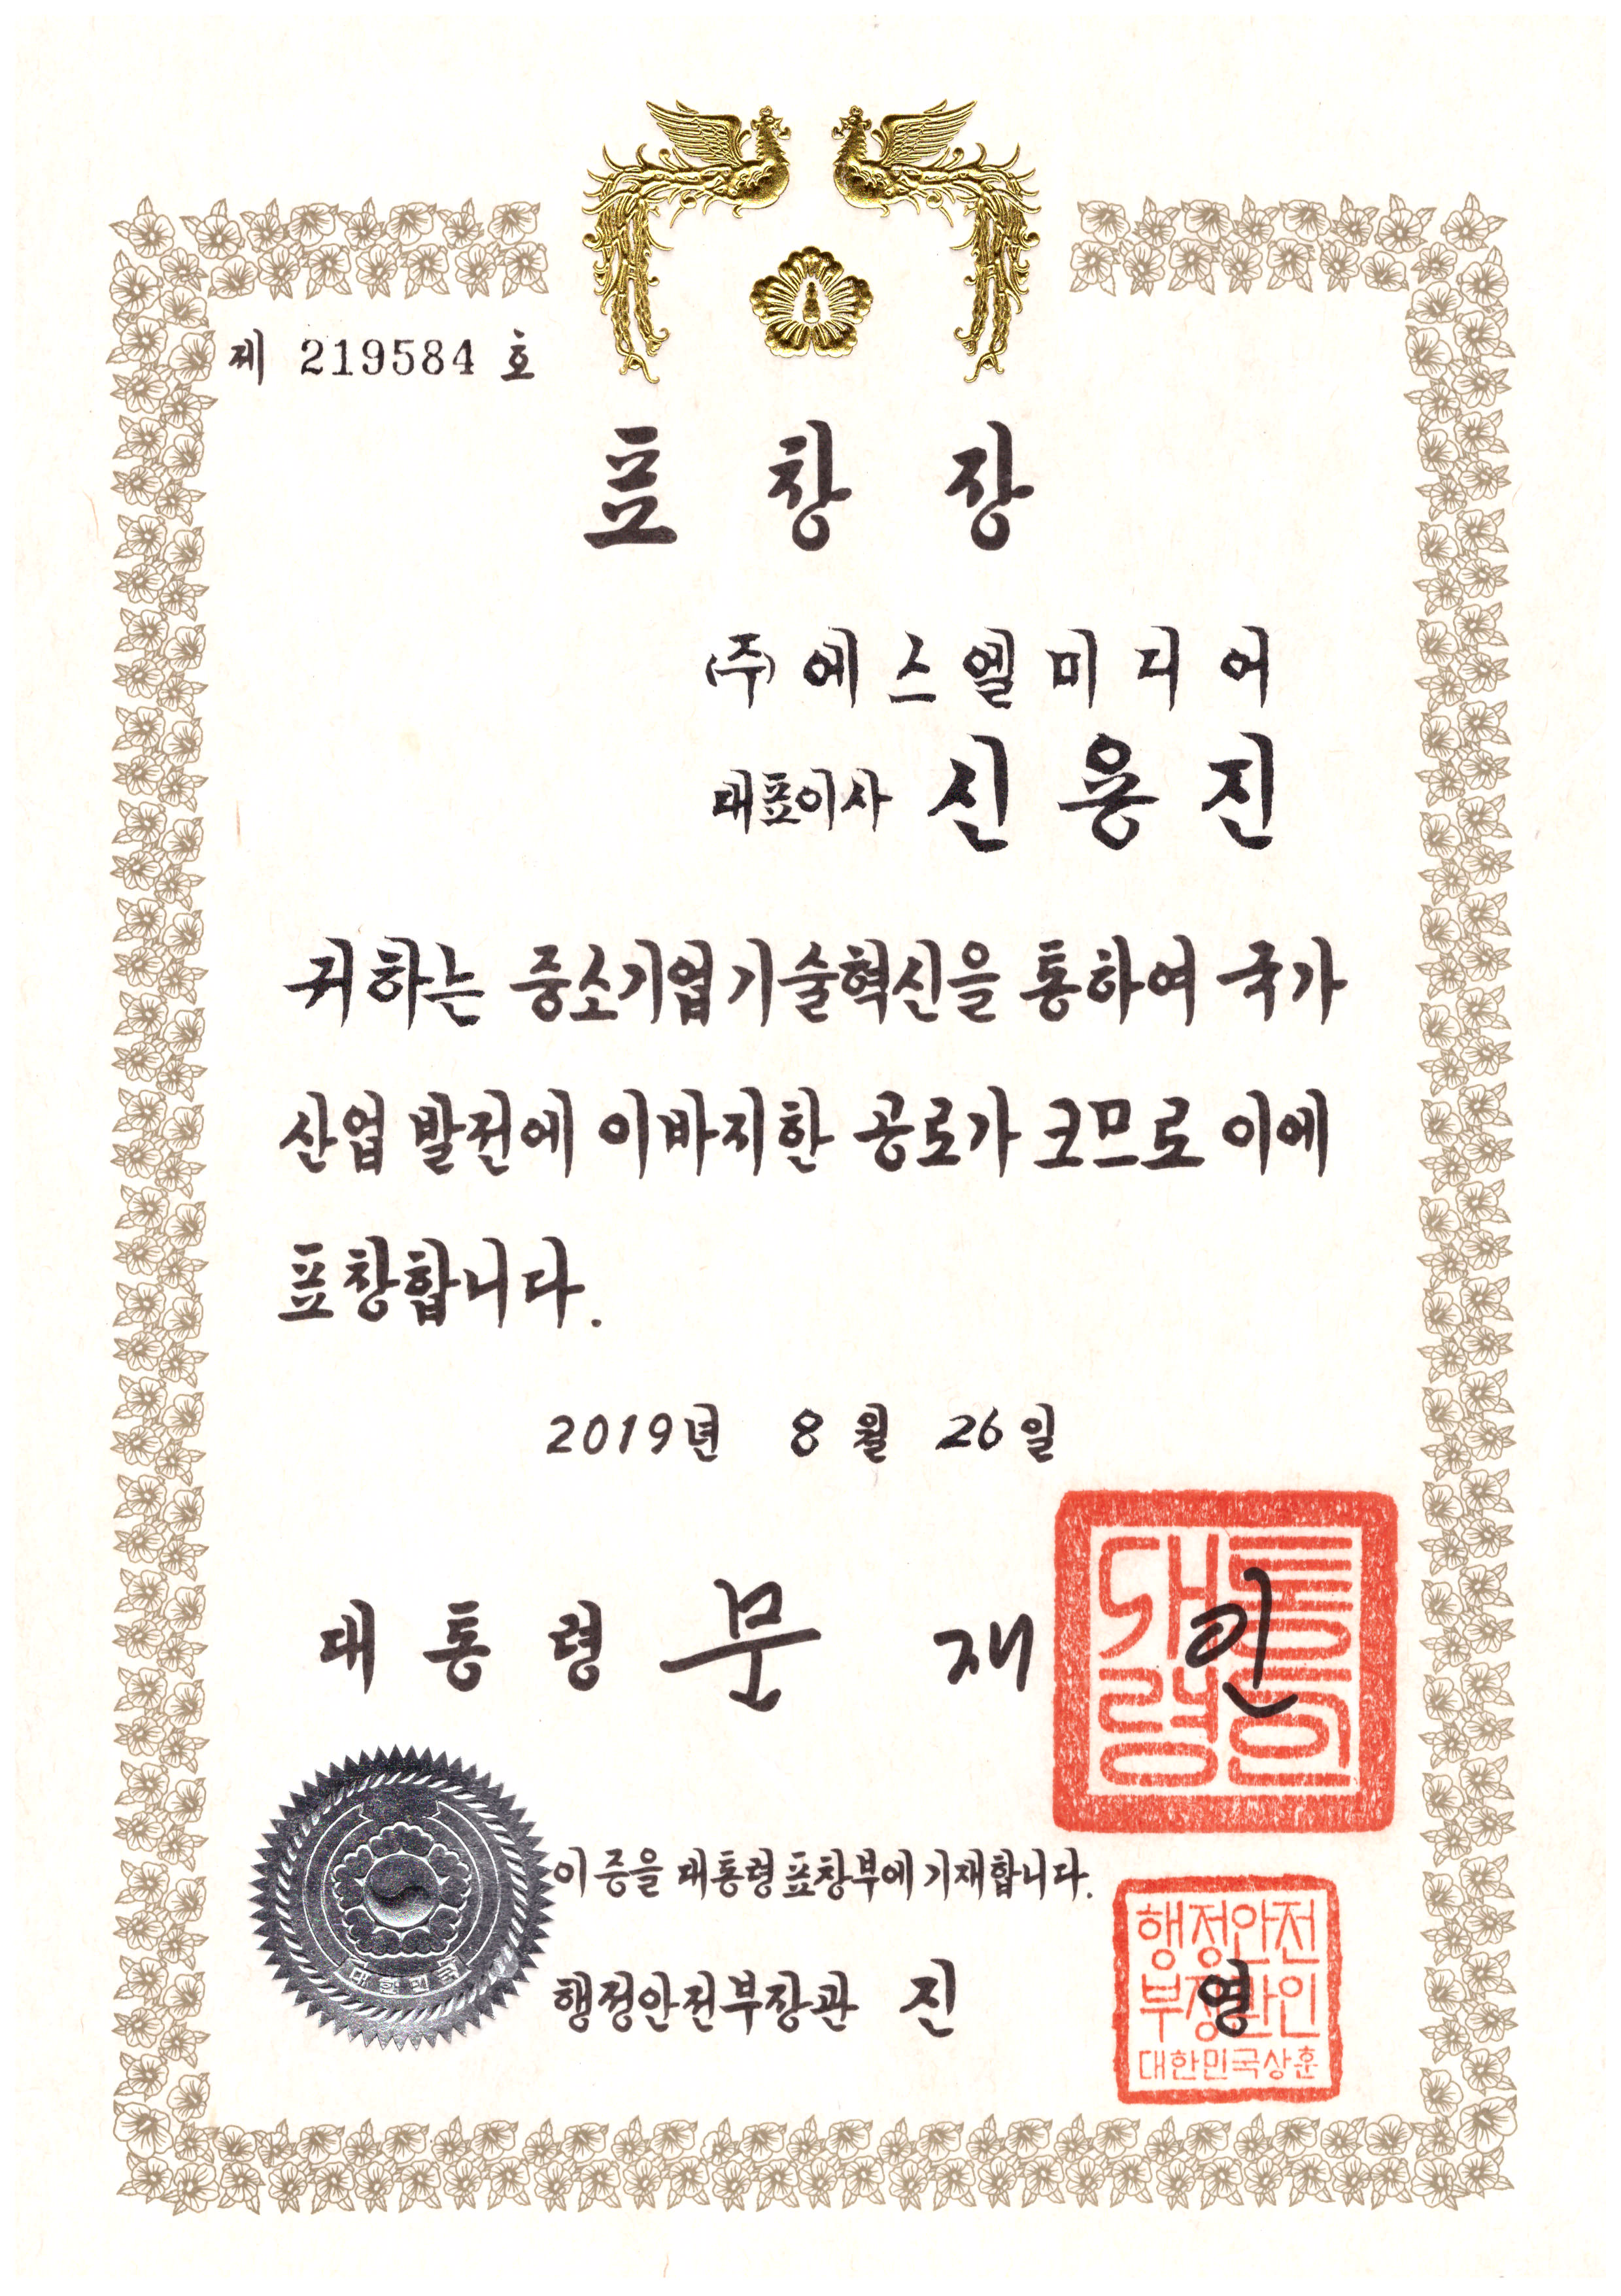 제 219584 호
표 창 장
(주) 에 스 엘 미 디 어
대표이사 신 용 진
귀하는 중소기업 기술혁신을 통하여 국가
산업 발전에 이바지한 공로가 크므로 이에
표창합니다.
2019년 8 월 26 일
대 통 령 문 재 인
대통
령인
이 증을 대통령 표창부에 기재합니다.
행정안전부장관 진 영
행정안전
부장관인
대한민국상훈
대한민국